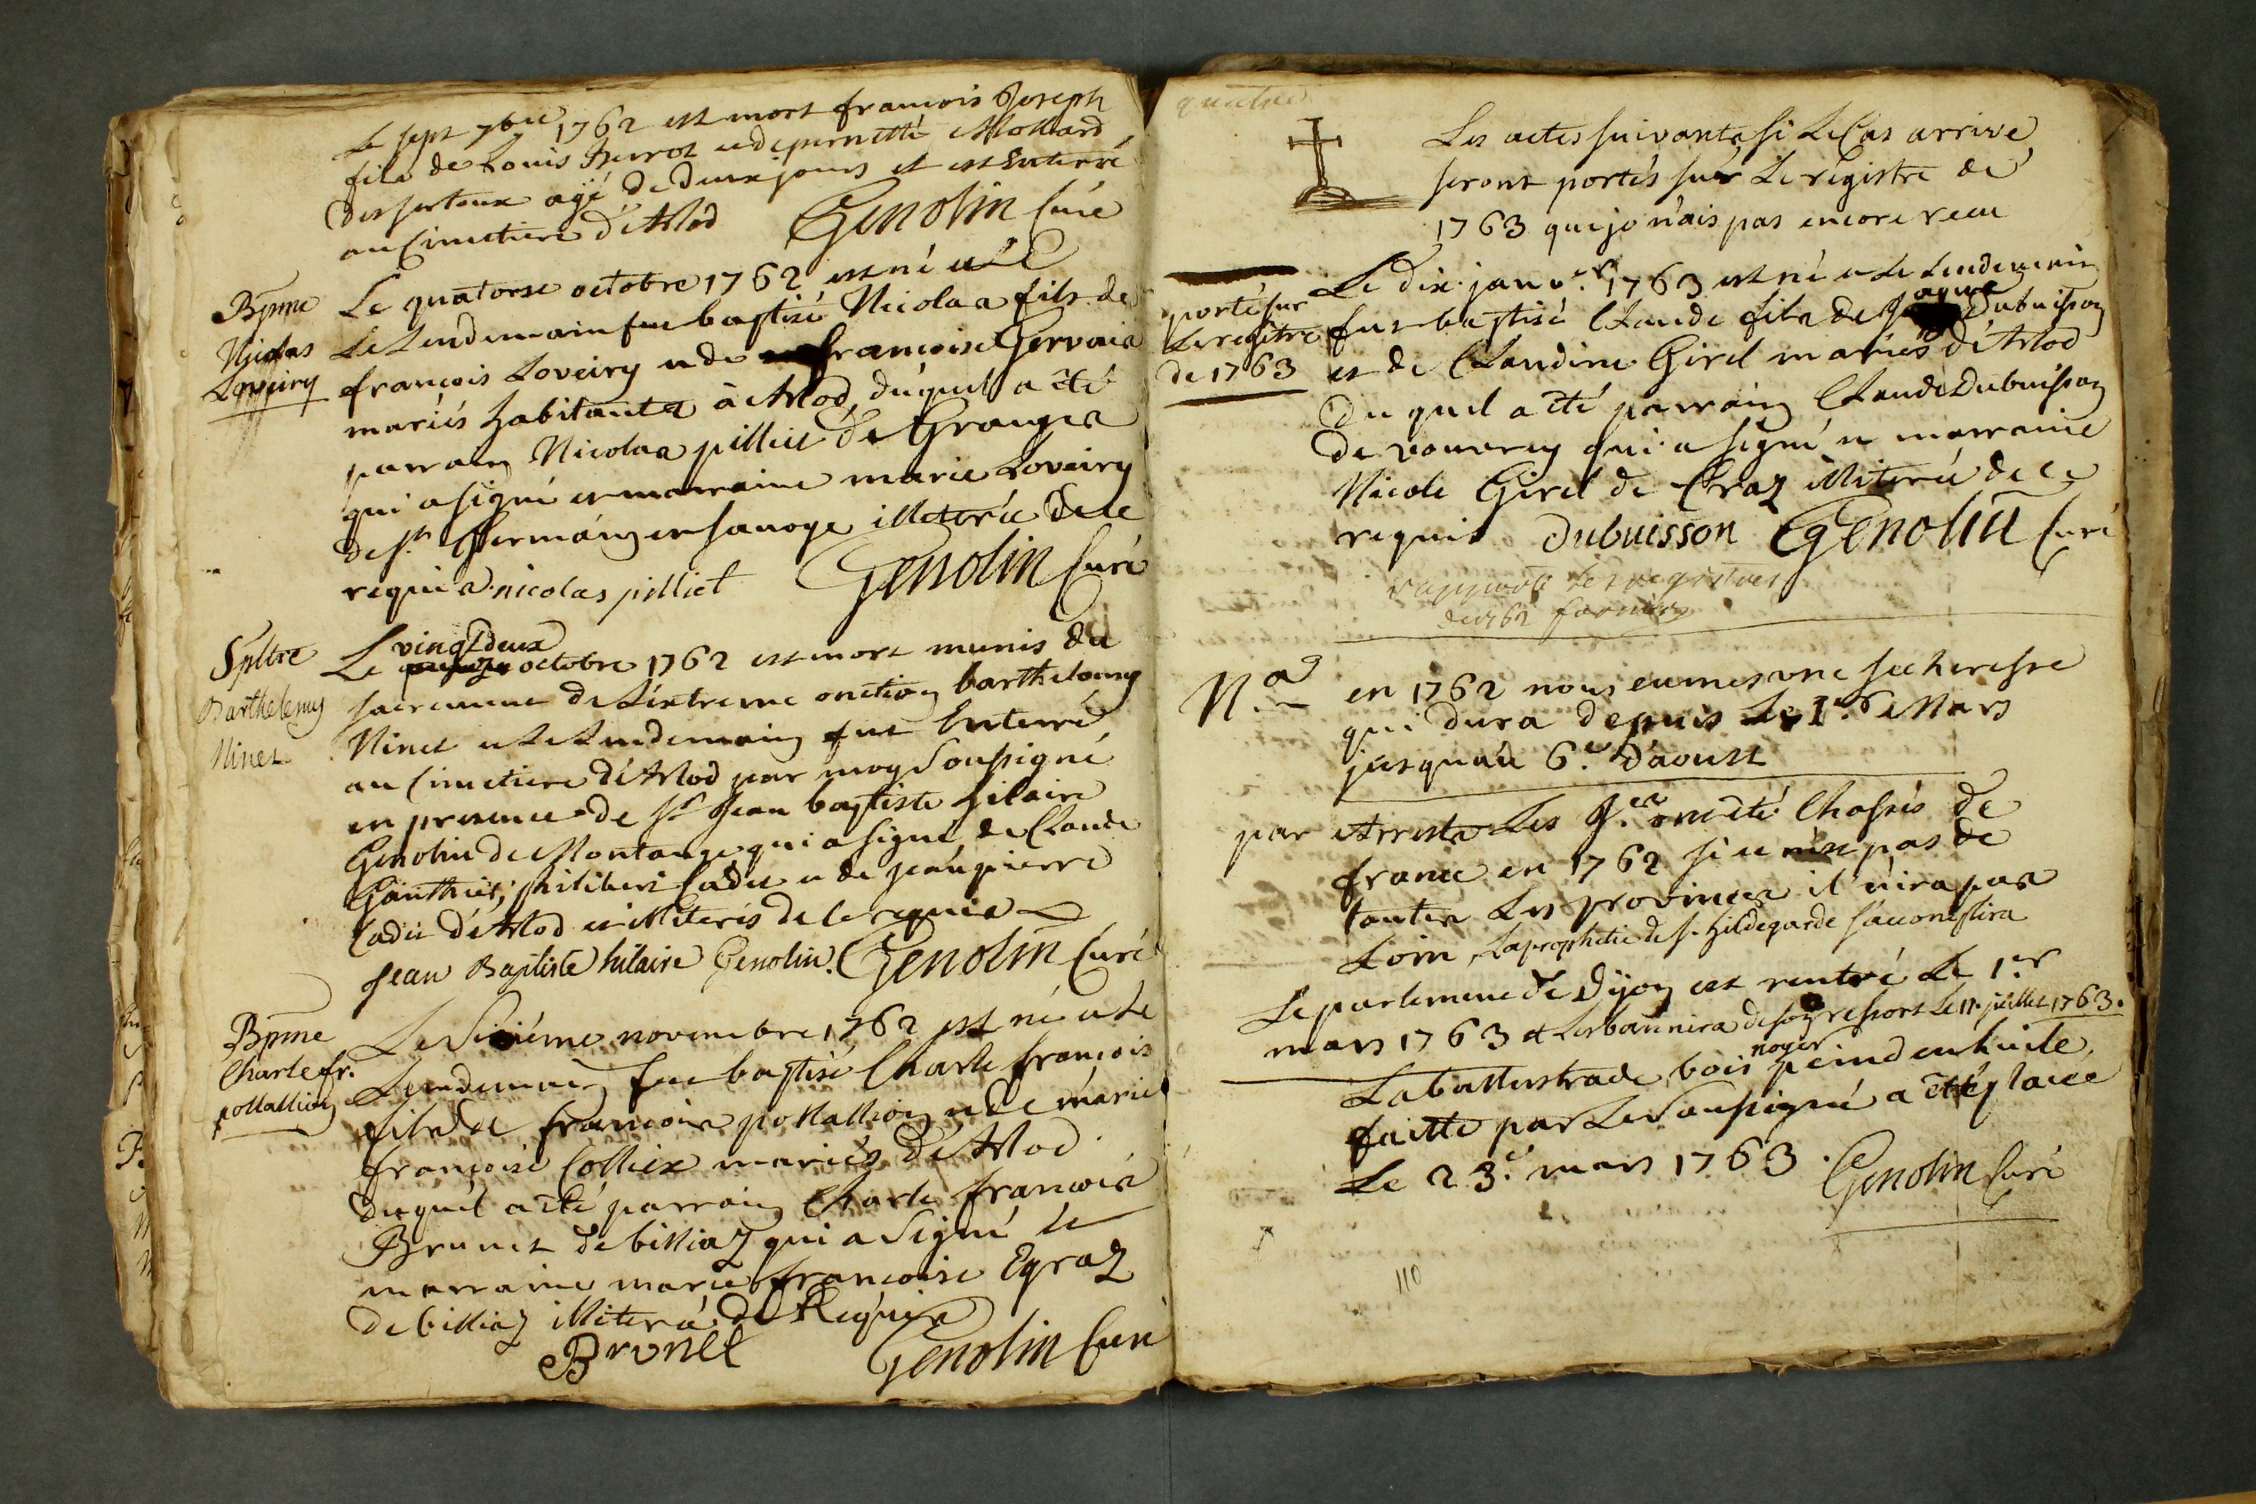 Le sept 7bre 1762 est mort francois Joseph
fils de Louis et de pernette Mollard
des serteux agé de deux jours et est enterré
au Cimetiere d'Arlod Genolin Curé
Bpme
Nicolas
Loveiry
Le quatorse octobre 1762 est né et le
Le Lendemain fut baptisé Nicolas fils de
françois Loveiry et de françoise Gervais
mariés habitants à Arlod, duquel a été
parrain Nicolas pilliet de Granges
qui a signé et marraine marie Loveiry
de st. Germain en savoye illeterée de ce
requis nicolas pilliet Genolin Curé
Spltre
Barthelemy
Ninet
vingt deux
Le octobre 1762 est mort munis du
sacrement de L'extreme onction barthelemy
Ninet et Le Lendemain fut Enterré
au Cimetiere d'Arlod par moy Soussigné
en presence de sr Jean baptiste hilaire
Genolin de Montange qui a signé de Claude
Gauthier, philibert Cadet et de jean pierre
Cadet d'Arlod et illiterés de ce requis
Jean Baptiste hilaire Genolin. Genolin Curé
Bpme
Charle fr.
pollallion
Le Sixiéme novembre 1762 est né et Le
Lendemain fut baptisé Charle françois
fils de francois pollallion et de marie
françoise Colliex mariés d'Arlod
duquel a été parrain Charle francois
Brunet de billiaz qui a Signé et
marraine marie francoise Egraz
de billiaz illiterée de Requis
Brunet Genolin Curé
quatre
Les actes suivants si Le Cas arrive
seront portés sur Le registre de
1763 que je n'ais pas encore recu
porté sur
Le regitre
de 1763
Le dix janv.er 1763 est né et Le Lendemain
fut baptisé Claude fils de Jaque Dubuisson
et de Claudine Girel mariés d'Arlod
Du quel a été parrain Claude Dubuisson
de vouvray qui a signé et marraine
Nicole Girel de Craz illiterée de ce
requis Dubuisson Genolin Curé
rapporté Les registres
de 1762
N.a en 1762 nous eumes une secheresse
qui dura depuis le 1r. de Mars
jusqu'au 6.e d'aoust
par Arrests Les J.es ont été Chassés de
france en 1762 si ce n'est pas de
toutes Les provinces il n'ira pas
Loin, La prophetie de s. hildegarde s'accomplira
Le parlement de Dijon est rentré Le 1.er
mars 1763 et Les bannira de son ressort Le 11. juillet 1763.
La ballustrade bois noyer peind en huile
faitte par Le Soussigné a été placée
Le 23.e mars 1763. Genolin Curé
110